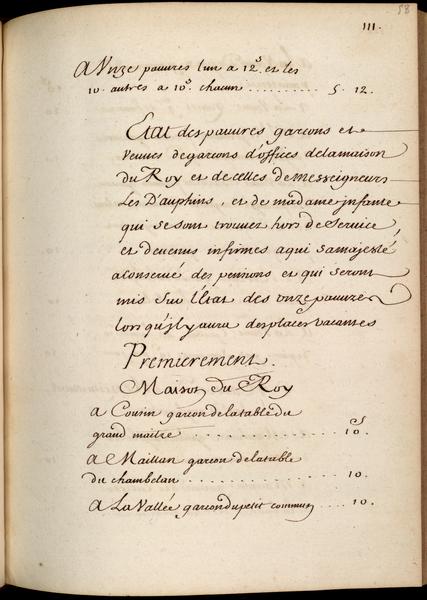 58
111.
A Unze pauvres l'un a 12.s et les
10. autres a 10.s chacun .......... 5. 12.
Etat des pauvres garçons et
veuves de garçons d'offices de la maison
du Roy et de celles de Messeigneurs
Les Dauphins, et de madame jnfante
qui se sont trouvez hors de Service
et devenus infirmes a qui sa majesté
a conservé des pensions et qui seront
mis sur l'Etat des unze pauvres
lors qu'jl y aura des places vacantes
Premierement.
Maison du Roy
A Cousin garcon de la table du
grand maitre ............ 10.s
A Maillan garcon de la table
du chambelan ............ 10.
A La Vallée garcon du petit commun .... 10.